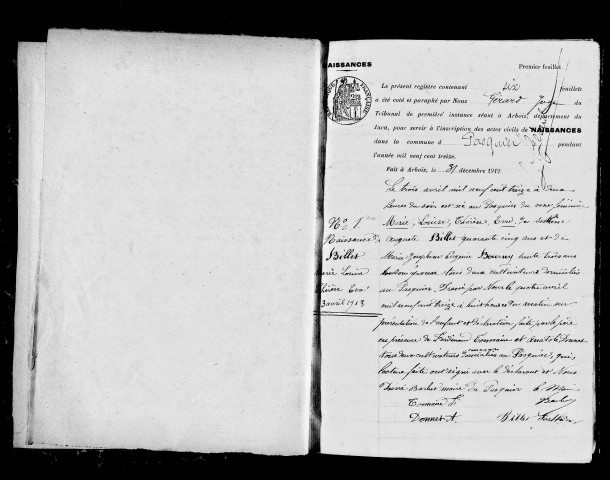 NAISSANCES
Premier feuillet
Le présent registre contenant six feuillets
a été coté et paraphé par Nous Gérard Juge du
Tribunal de première instance séant à Arbois, département du
Jura, pour servir à l'inscription des actes civils de NAISSANCES
dans la commune d Pasquier pendant
l'année mil neuf cent treize.
Fait à Arbois, le 31 décembre 1912
No 1
Naissance de
Billet
Marie Louise
Thérèse Eva
3 avril 1913
Le trois avril mil neuf cent treize à deux
heures du soir est née au Pasquier du sexe féminin
Marie, Louise, Thérèse, Eva, de
Auguste Billet quarante cinq ans et de
Marie Joséphine Eugénie trente trois ans
son épouse tous deux cultivateurs domiciliés
au Pasquier. Dressé par Nous le quatre avril
mil neuf cent treize à huit heures du matin sur
présentation de l'enfant et déclaration faite par le père
en présence de Ferdinand et Anatole Donnet
Tous deux cultivateurs domiciliés au Pasquier, qui,
lecture faite ont signé avec le déclarant et Nous
maire du Pasquier le Maire
Donnet A. Billet